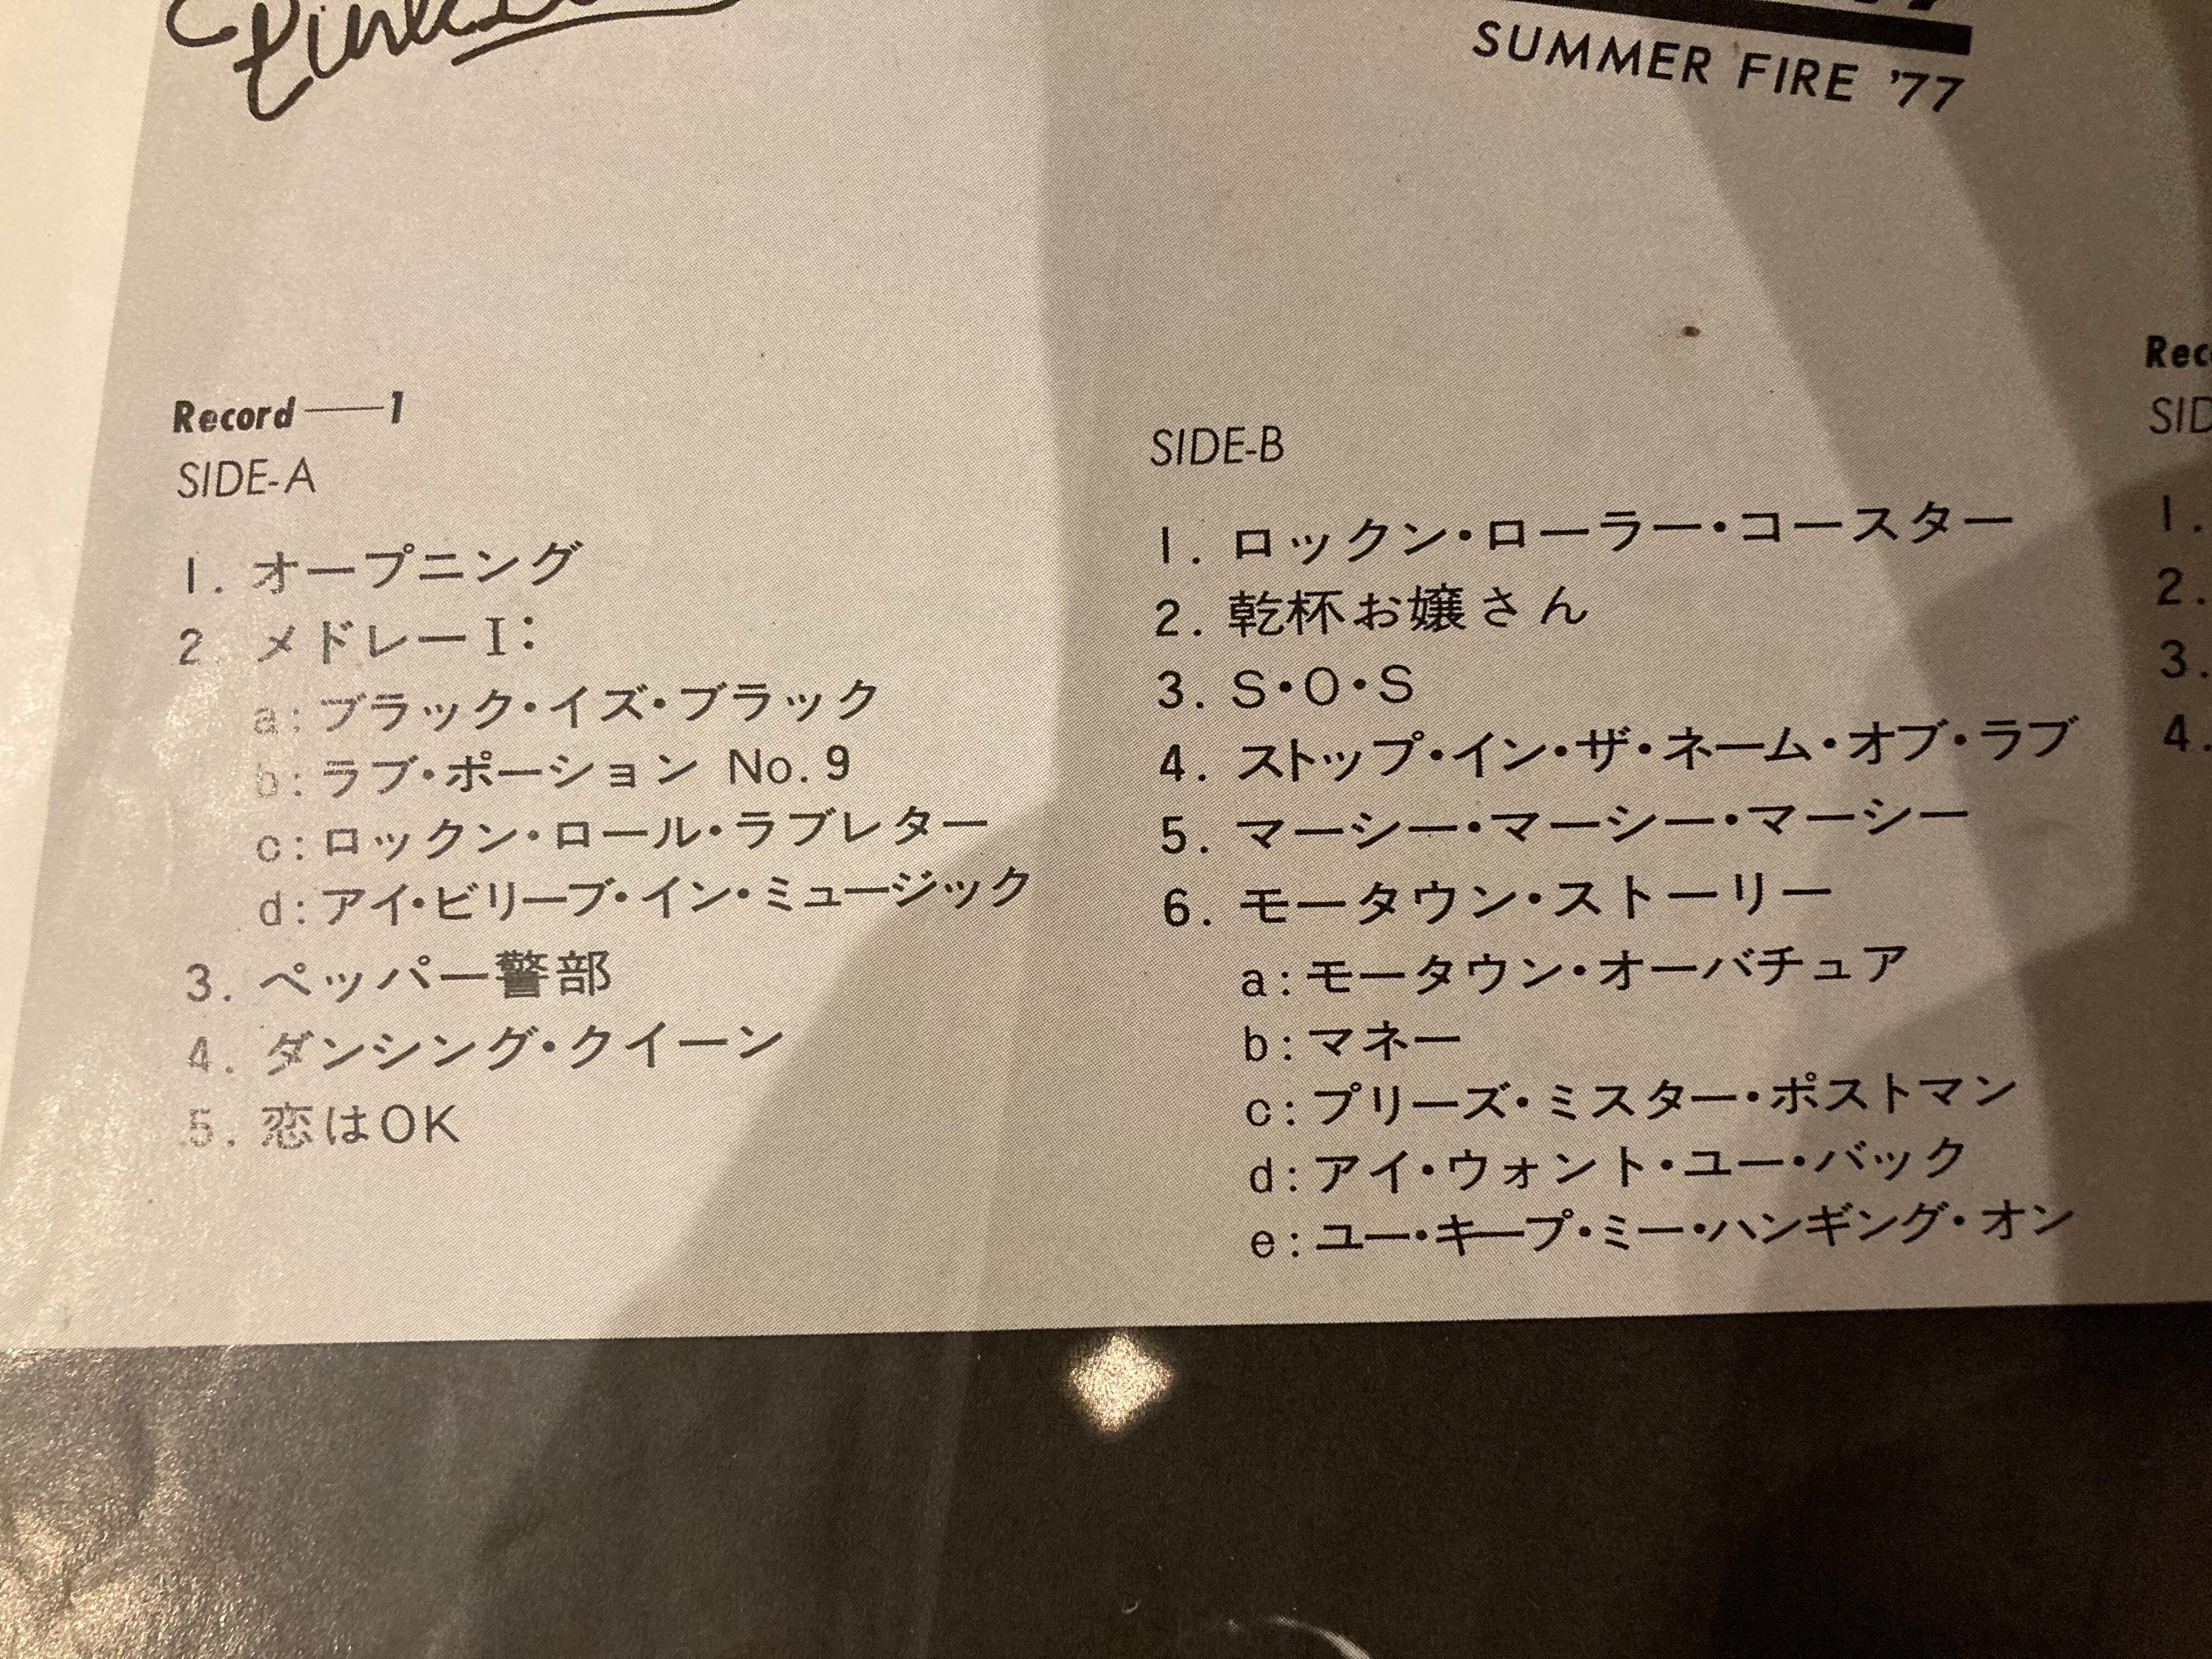 Pink
SUMMER FIRE '77
Record——1
SIDE-A
1. オープニング
2 メドレーⅠ:
a: ブラック・イズ・ブラック
b: ラブ・ポーション No. 9
c: ロックン・ロール・ラブレター
d: アイ・ビリーブ・イン・ミュージック
3. ペッパー警部
4. ダンシング・クイーン
5. 恋はOK
SIDE-B
1. ロックン・ローラー・コースター
2. 乾杯お嬢さん
3. S・O・S
4. ストップ・イン・ザ・ネーム・オブ・ラブ
5. マーシー・マーシー・マーシー
6. モータウン・ストーリー
a: モータウン・オーバチュア
b: マネー
c: プリーズ・ミスター・ポストマン
d: アイ・ウォント・ユー・バック
e: ユー・キープ・ミー・ハンギング・オン
Rec
SID
1.
2.
3.
4.